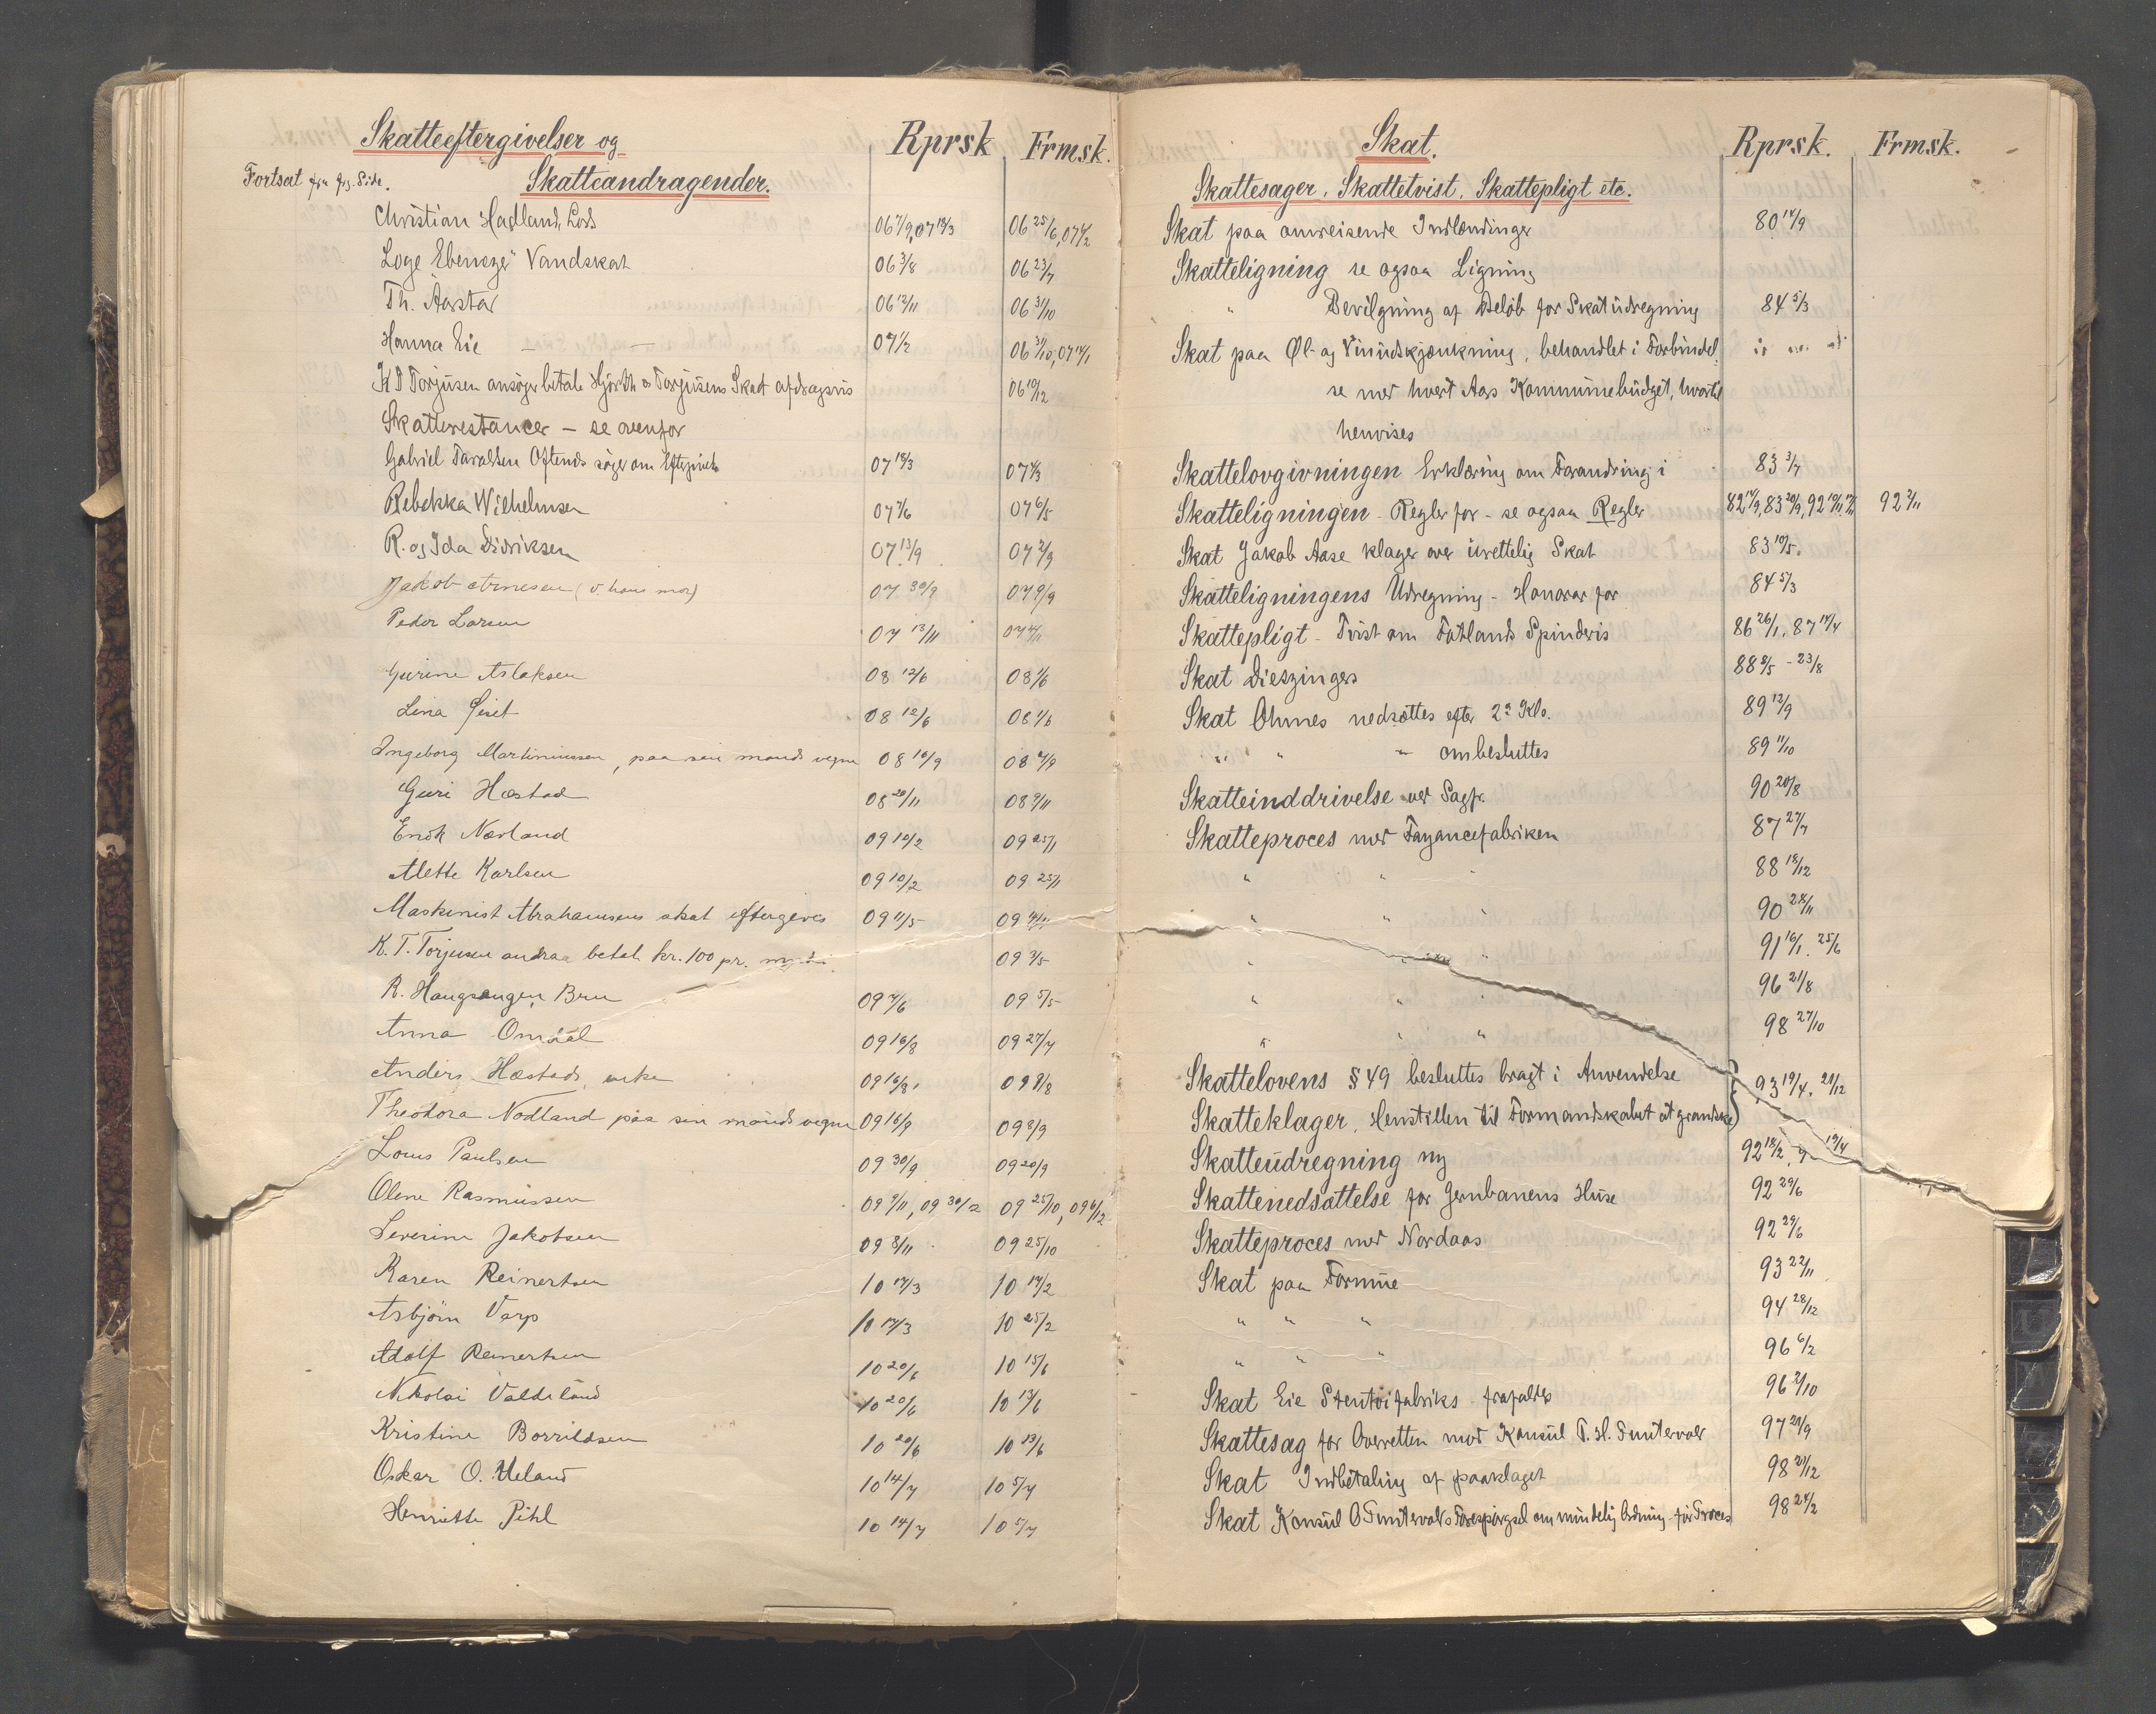 Skatteeftergivelser og Rprsk Frmsk.
Fortsat fra frg. Side. Skatteandragender.
Christian Hadland, Lods 06 7/9, 07 18/3 06 25/6, 07 4/2
Loge "Ebenezer" Vandskat 06 3/8 06 23/7
Th. Aarstar 06 12/11 06 31/10
Hanna Eie — — 07 1/2 06 31/10, 07 14/1
K T Torjusen ansøger betale Hjorth & Torjusens Skat afdragsvis 06 10/12
Skatterestancer – se ovenfor
Gabriel Taraldsen Oftends søger om Eftergivelse 07 18/3 07 4/3
Rebekka Wilhelmsen 07 7/6 07 6/5
R. og Ida Didriksen 07 13/9 07 2/9
Jakob Arnesen (v. hans mor) 07 30/9 07 9/9
Peder Larsen 07 13/11 07 4/11
Gurine Aslaksen 08 12/6 08 1/6
Lina Gjeit 08 12/6 08 1/6
Ingeborg Martiniussen, paa sin mands vegne 08 10/9 08 7/9
Guri Hæstad 08 20/11 08 9/11
Enok Nærland 09 10/2 09 25/1
Alette Karlsen 09 10/2 09 25/1
Maskinist Abrahamsens skat eftergives 09 11/5
K. T. Torjusen andraa betal. kr. 100 pr. 09 3/5
R. Haugsangen, Bru 09 7/6 09 5/5
Anna Omdal 09 16/8 09 27/7
Anders Hæstads, enke 09 16/8 09 9/8
Theodora Nodland paa sin mands vegne 09 16/9 09 8/9
Louis Paulsen 09 30/9 09 20/9
Olene Rasmussen 09 9/11, 09 30/12 09 25/10, 09 6/12
Severine Jakobsen 09 8/11 09 25/10
Karen Reinertsen 10 17/3 10 17/2
Asbjørn Varp 10 17/3 10 25/2
Adolf Reinertsen 10 20/6 10 15/6
Nikolai Valdeland 10 20/6 10 13/6
Kristine Borrildsen 10 20/6 10 13/6
Oskar O. Ueland 10 14/7 10 5/7
Henriette Pihl 10 14/7 10 5/7
Skat. Rprsk. Frmsk.
Skattesager, Skattetvist, Skattepligt etc.
Skat paa omreisende Indlændinger 80 14/9
Skatteligning se ogsaa Ligning
" Bevilgning af Beløb for Skatudregning 84 5/3
Skat paa Øl- og Vinudskjænkning, behandlet i Forbindel.
se med hvert Aars Kommunebudget, hvortil
henvises
Skattelovgivningen Erklæring om Forandring i 83 3/7
Skatteligningen – Regler for – se ogsaa Regler 82 14/9, 83 20/9, 92 10/11 92 2/11
Skat Jakob Aase klager over urettelig Skat 83 10/5.
Skatteligningens Udregning – Honorar for 84 5/3
Skattepligt – Tvist om Fotlands Spinderis 86 26/1, 87 14/4
Skat Dieszingers 88 8/5 – 23/8
Skat Ohmes nedsættes efter 2den Kls. 89 12/9
" " " ombesluttes 89 11/10
Skatteinddrivelse ved Sagfr. 90 20/8
Skatteproces med Fayancefabriken 87 27/7
" " " 88 18/12
" " " 90 28/11
" " " 91 16/1. 25/6
" " " 96 21/8
" " " 98 27/10
Skattelovens § 49 besluttes bragt i Anvendelse } 93 19/4. 21/12
Skatteklager, Henstillen til Formandskabet at granske
Skatteudregning ny 92 18/2, 19/4
Skattenedsættelse for Jernbanens Huse 92 29/6
Skatteproces med Nordaas 92 29/6
Skat paa Formue 93 22/11
" " " 94 28/12
" " " 96 6/2
Skat Eie Stentøifabriks – frafaldes 96 2/10
Skattesag for Overretten mod Konsul T. H. Puntervold 97 21/9
Skat Indbetaling af paaklaget 98 21/12
Skat Konsul O Puntervolds Forespørgsel om mindelig Ordning før Proces 98 24/2